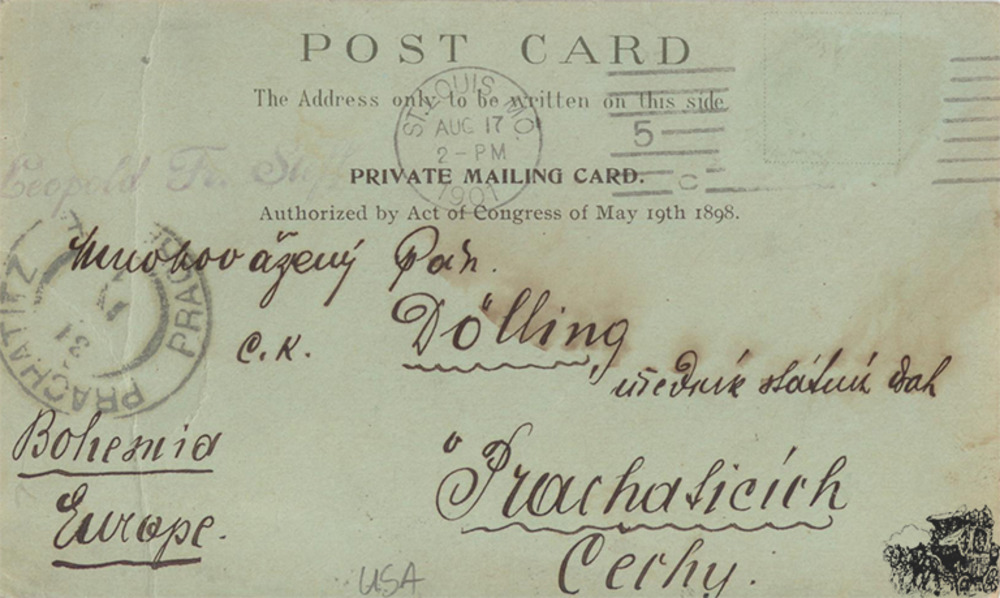 POST CARD
The Address only to be written on this side
ST. LOUIS, MO.
AUG 17
2-PM
1901
5
C
PRIVATE MAILING CARD.
Authorized by Act of Congress of May 19th 1898.
Leopold Fr.
PRACHATITZ
PRACHA
31
Mnohovážený Pan.
Dölling,
C. K.
úředník státních drah
Bohemia
v Prachaticích
Europe.
Čechy.
USA